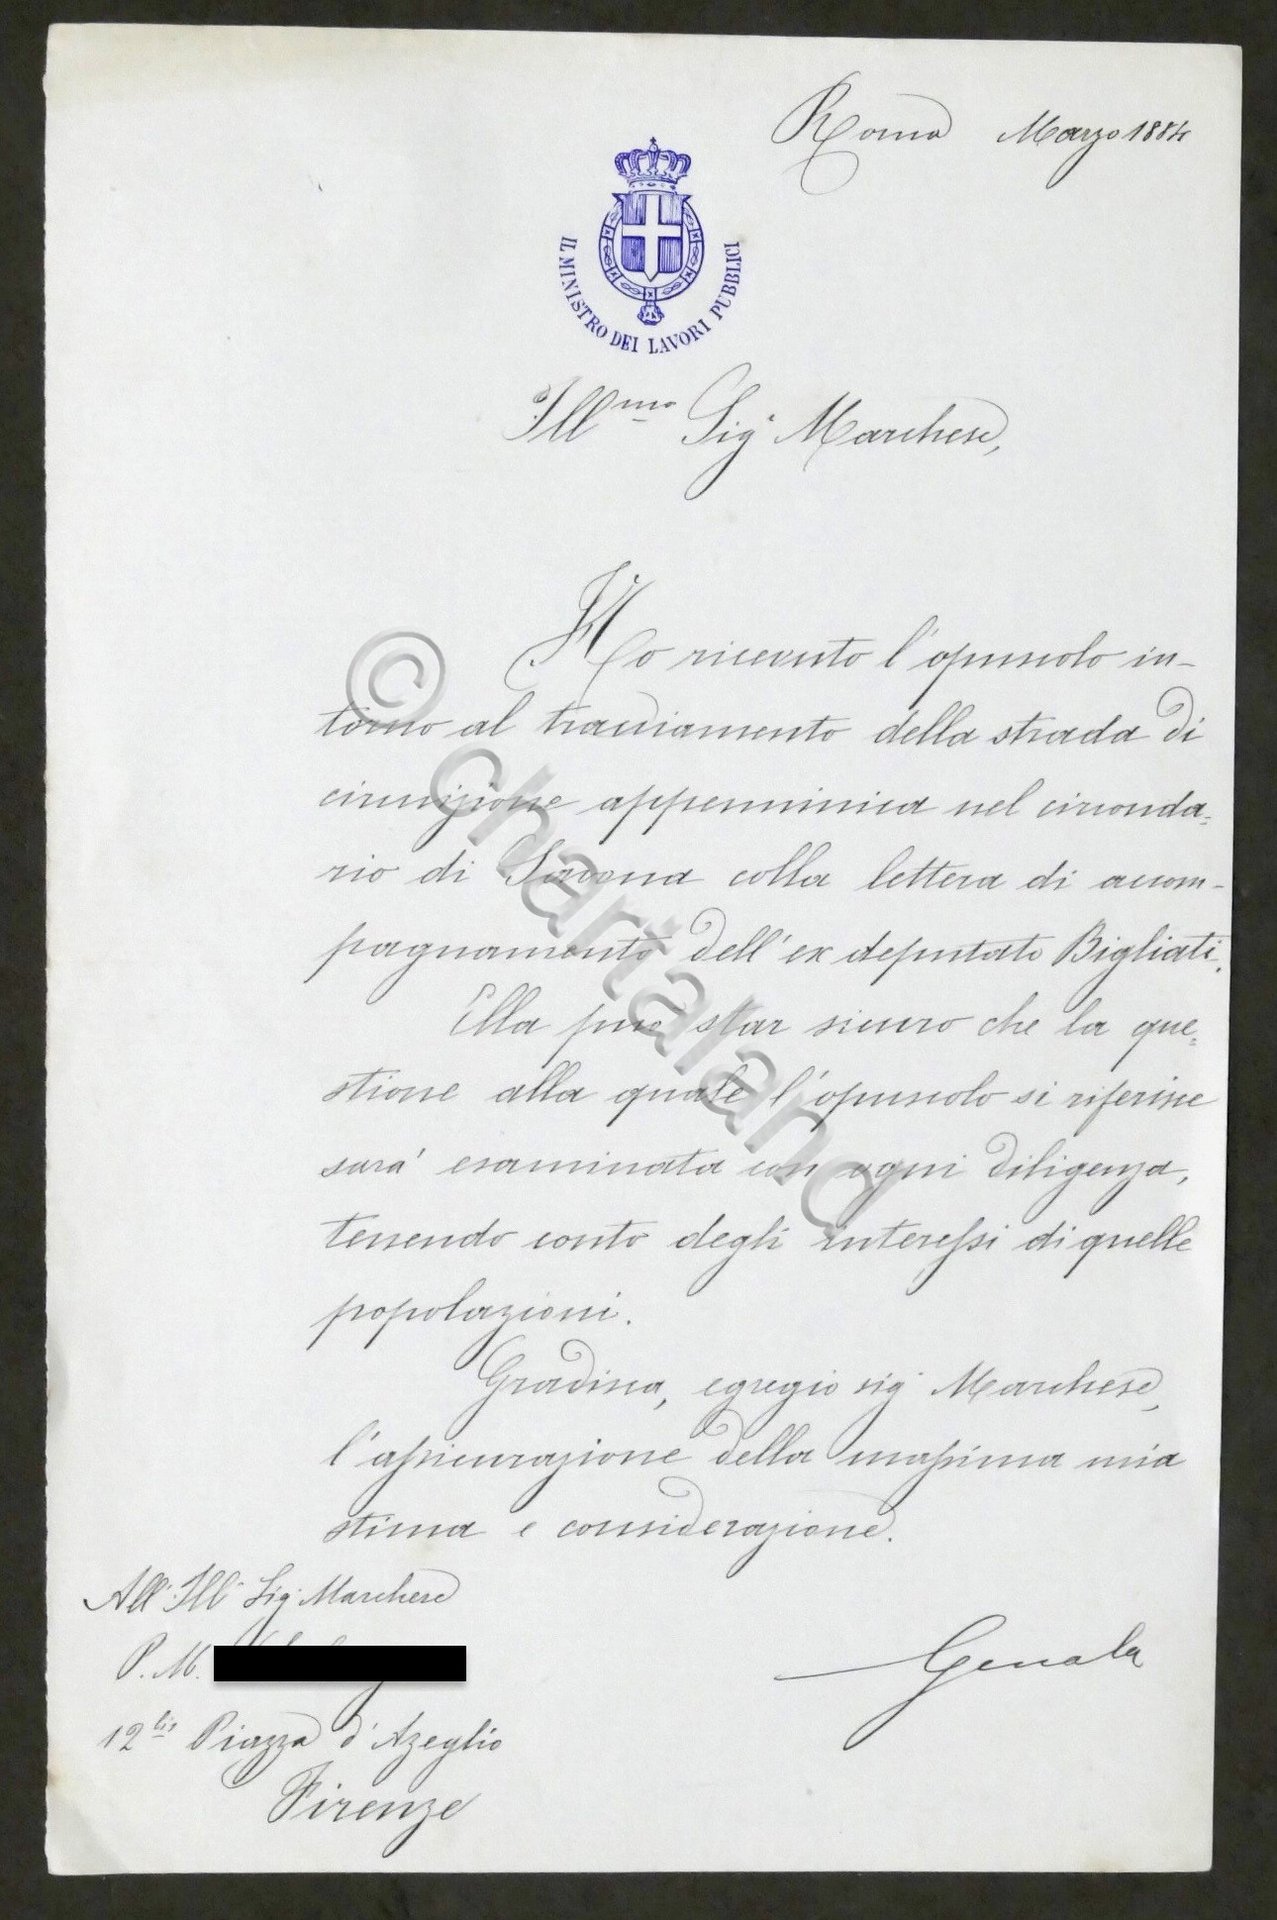 Roma Marzo 1884
IL MINISTRO DEI LAVORI PUBBLICI
Ill.mo Sig.r Marchese,
Ho ricevuto l'opuscolo in-
torno al tracciamento della strada di
circuizione appenninica nel circonda=
rio di Savona colla lettera di accom-
pagnamento dell'ex deputato Bigliati.
Ella può star sicuro che la que=
stione alla quale l'opuscolo si riferisce
sarà esaminata con ogni diligenza,
tenendo conto degli interessi di quelle
popolazioni.
Gradisca, egregio sig.r Marchese,
l'assicurazione della massima mia
stima e considerazione.
Genala
All'Ill. Sig. Marchese
P. M.
12 bis Piazza d'Azeglio
Firenze
© chartaland